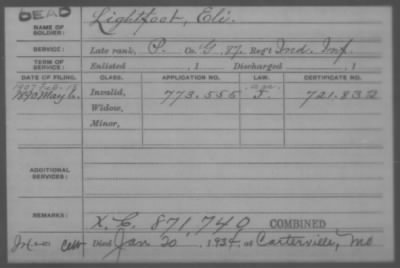 DEAD
NAME OF SOLDIER: Lightfoot, Eli.
SERVICE: Late rank, P. Co. G, 87. Reg't Ind. Inf.
TERM OF SERVICE: Enlisted , 1 Discharged , 1
DATE OF FILING. CLASS. APPLICATION NO. LAW. CERTIFICATE NO.
1907 Feb. 18
1890 May 6. Invalid, 773.555 J. 721.832
Widow,
Minor,
ADDITIONAL SERVICES:
REMARKS: X.C. 871,740 COMBINED
Died Jan 20, 1934, at Carterville, Mo